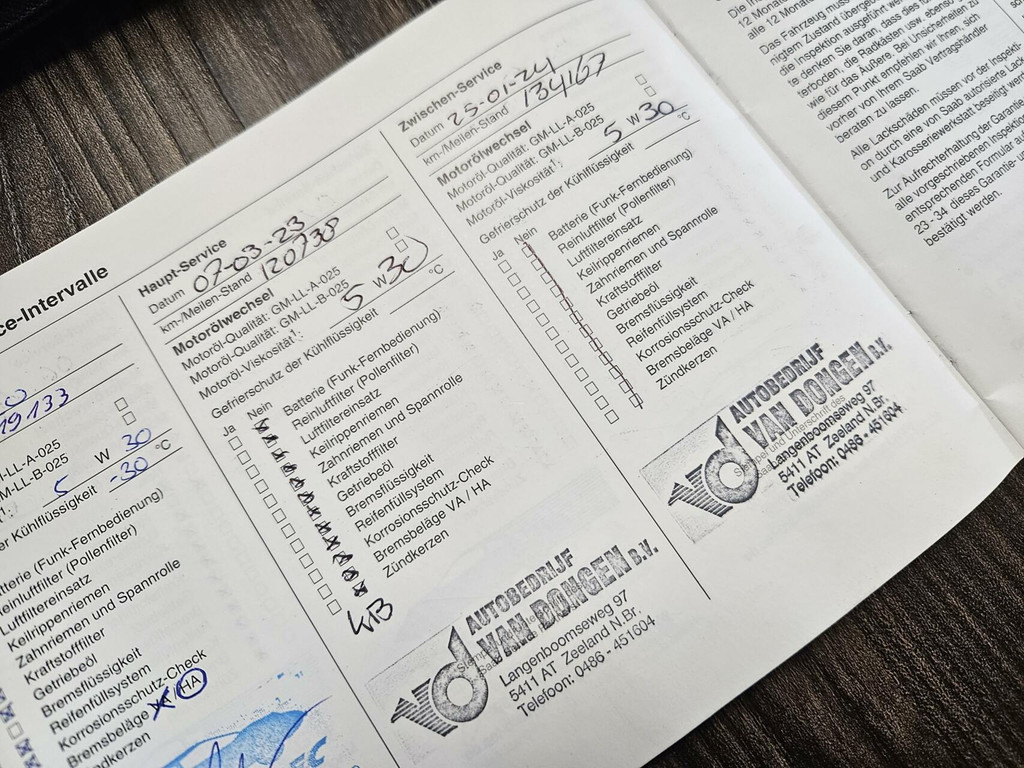 ce-Intervalle
19133
-LL-A-025
M-LL-B-025
5 W 30
er Kühlflüssigkeit -30 °C
tterie (Funk-Fernbedienung)
einluftfilter (Pollenfilter)
Luftfiltereinsatz
Keilrippenriemen
Zahnriemen und Spannrolle
Kraftstofffilter
Getriebeöl
Bremsflüssigkeit
Reifenfüllsystem
Korrosionsschutz-Check
Bremsbeläge VA / HA
ndkerzen
Haupt-Service
Datum 07-03-23
km-/Meilen-Stand 120738
Motorölwechsel
Motoröl-Qualität: GM-LL-A-025
Motoröl-Qualität: GM-LL-B-025
Motoröl-Viskosität¹: 5 W 30
Gefrierschutz der Kühlflüssigkeit °C
Ja Nein
Batterie (Funk-Fernbedienung)
Reinluftfilter (Pollenfilter)
Luftfiltereinsatz
Keilrippenriemen
Zahnriemen und Spannrolle
Kraftstofffilter
Getriebeöl
Bremsflüssigkeit
Reifenfüllsystem
Korrosionsschutz-Check
Bremsbeläge VA / HA
Zündkerzen
AUTOBEDRIJF
VAN DONGEN B.V.
Langenboomseweg 97
5411 AT Zeeland N.Br.
Telefoon: 0486 - 451604
Zwischen-Service
Datum 25-01-24
km-/Meilen-Stand 134167
Motorölwechsel
Motoröl-Qualität: GM-LL-A-025
Motoröl-Qualität: GM-LL-B-025
Motoröl-Viskosität¹: 5 W 30
Gefrierschutz der Kühlflüssigkeit °C
Ja Nein
Batterie (Funk-Fernbedienung)
Reinluftfilter (Pollenfilter)
Luftfiltereinsatz
Keilrippenriemen
Zahnriemen und Spannrolle
Kraftstofffilter
Getriebeöl
Bremsflüssigkeit
Reifenfüllsystem
Korrosionsschutz-Check
Bremsbeläge VA / HA
Zündkerzen
AUTOBEDRIJF
VAN DONGEN B.V.
Langenboomseweg 97
5411 AT Zeeland N.Br.
Telefoon: 0486 - 451604
Die In
12 Monat
alle 12 Monate
Das Fahrzeug muss
nigdem Zustand übergeb
die Inspektion ausgeführt we
te denken Sie daran, dass dies fü
terboden, die Radkästen usw. ebenso
wie für das Äußere. Bei Unsicherheiten zu
diesem Punkt empfehlen wir Ihnen, sich
vorher von Ihrem Saab Vertragshändler
beraten zu lassen.
Alle Lackschäden müssen vor der Inspekti-
on durch eine von Saab autorisierte Lack
und Karosseriewerkstatt beseitigt werd
Zur Aufrechterhaltung der Garantie
alle vorgeschriebenen Inspektion
entsprechenden Formular a
23-34 dieses Garantie- u
bestätigt werden.